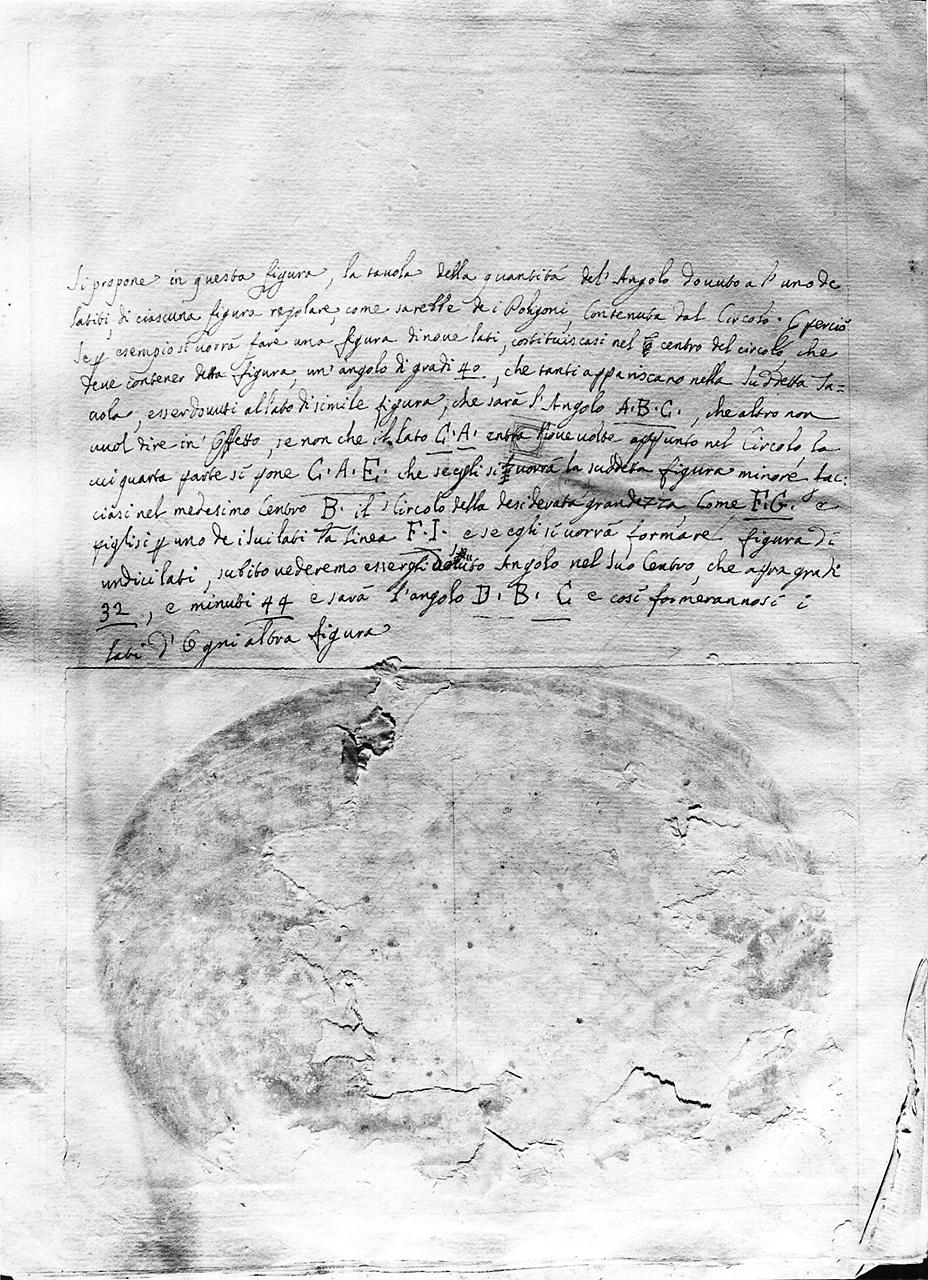 Si propone in questa figura, la tavola della quantità del' Angolo dovuto a l' uno de
latibi, di ciascuna figura regolare, come sarebbe de i Poligoni, Contenuta dal Circolo. E perciò
se p esempio si vorrà fare una figura di nove lati, costituiscasi nel centro del circolo, che
deve contener detta figura, un' angolo di gradi 40, che tanti appariscano nella Sudetta Ta=
uola, esser dovuti al lato di simile figura, che sarà l' Angolo A. B. C., che altro non
vuol dire in' Effetto, se non che il lato C. A. entra nove volte appunto nel Circolo la
cui quarta parte si pone C. A. E. che se egli si vorrà la suddetta figura minore, fac:
ciasi nel medesimo Centro B. il Circolo della desiderata grandezza Come F. G. e
piglisi p uno de i sui lati la linea F. I., e se egli si vorrà formare figura di
undici lati, subito vederemo essergli dovuto Angolo nel suo Centro, che apra gradi
32, e minuti 44 e sarà l' angolo D. B. C e così formerannosi i
lati d' Ogni altra figura